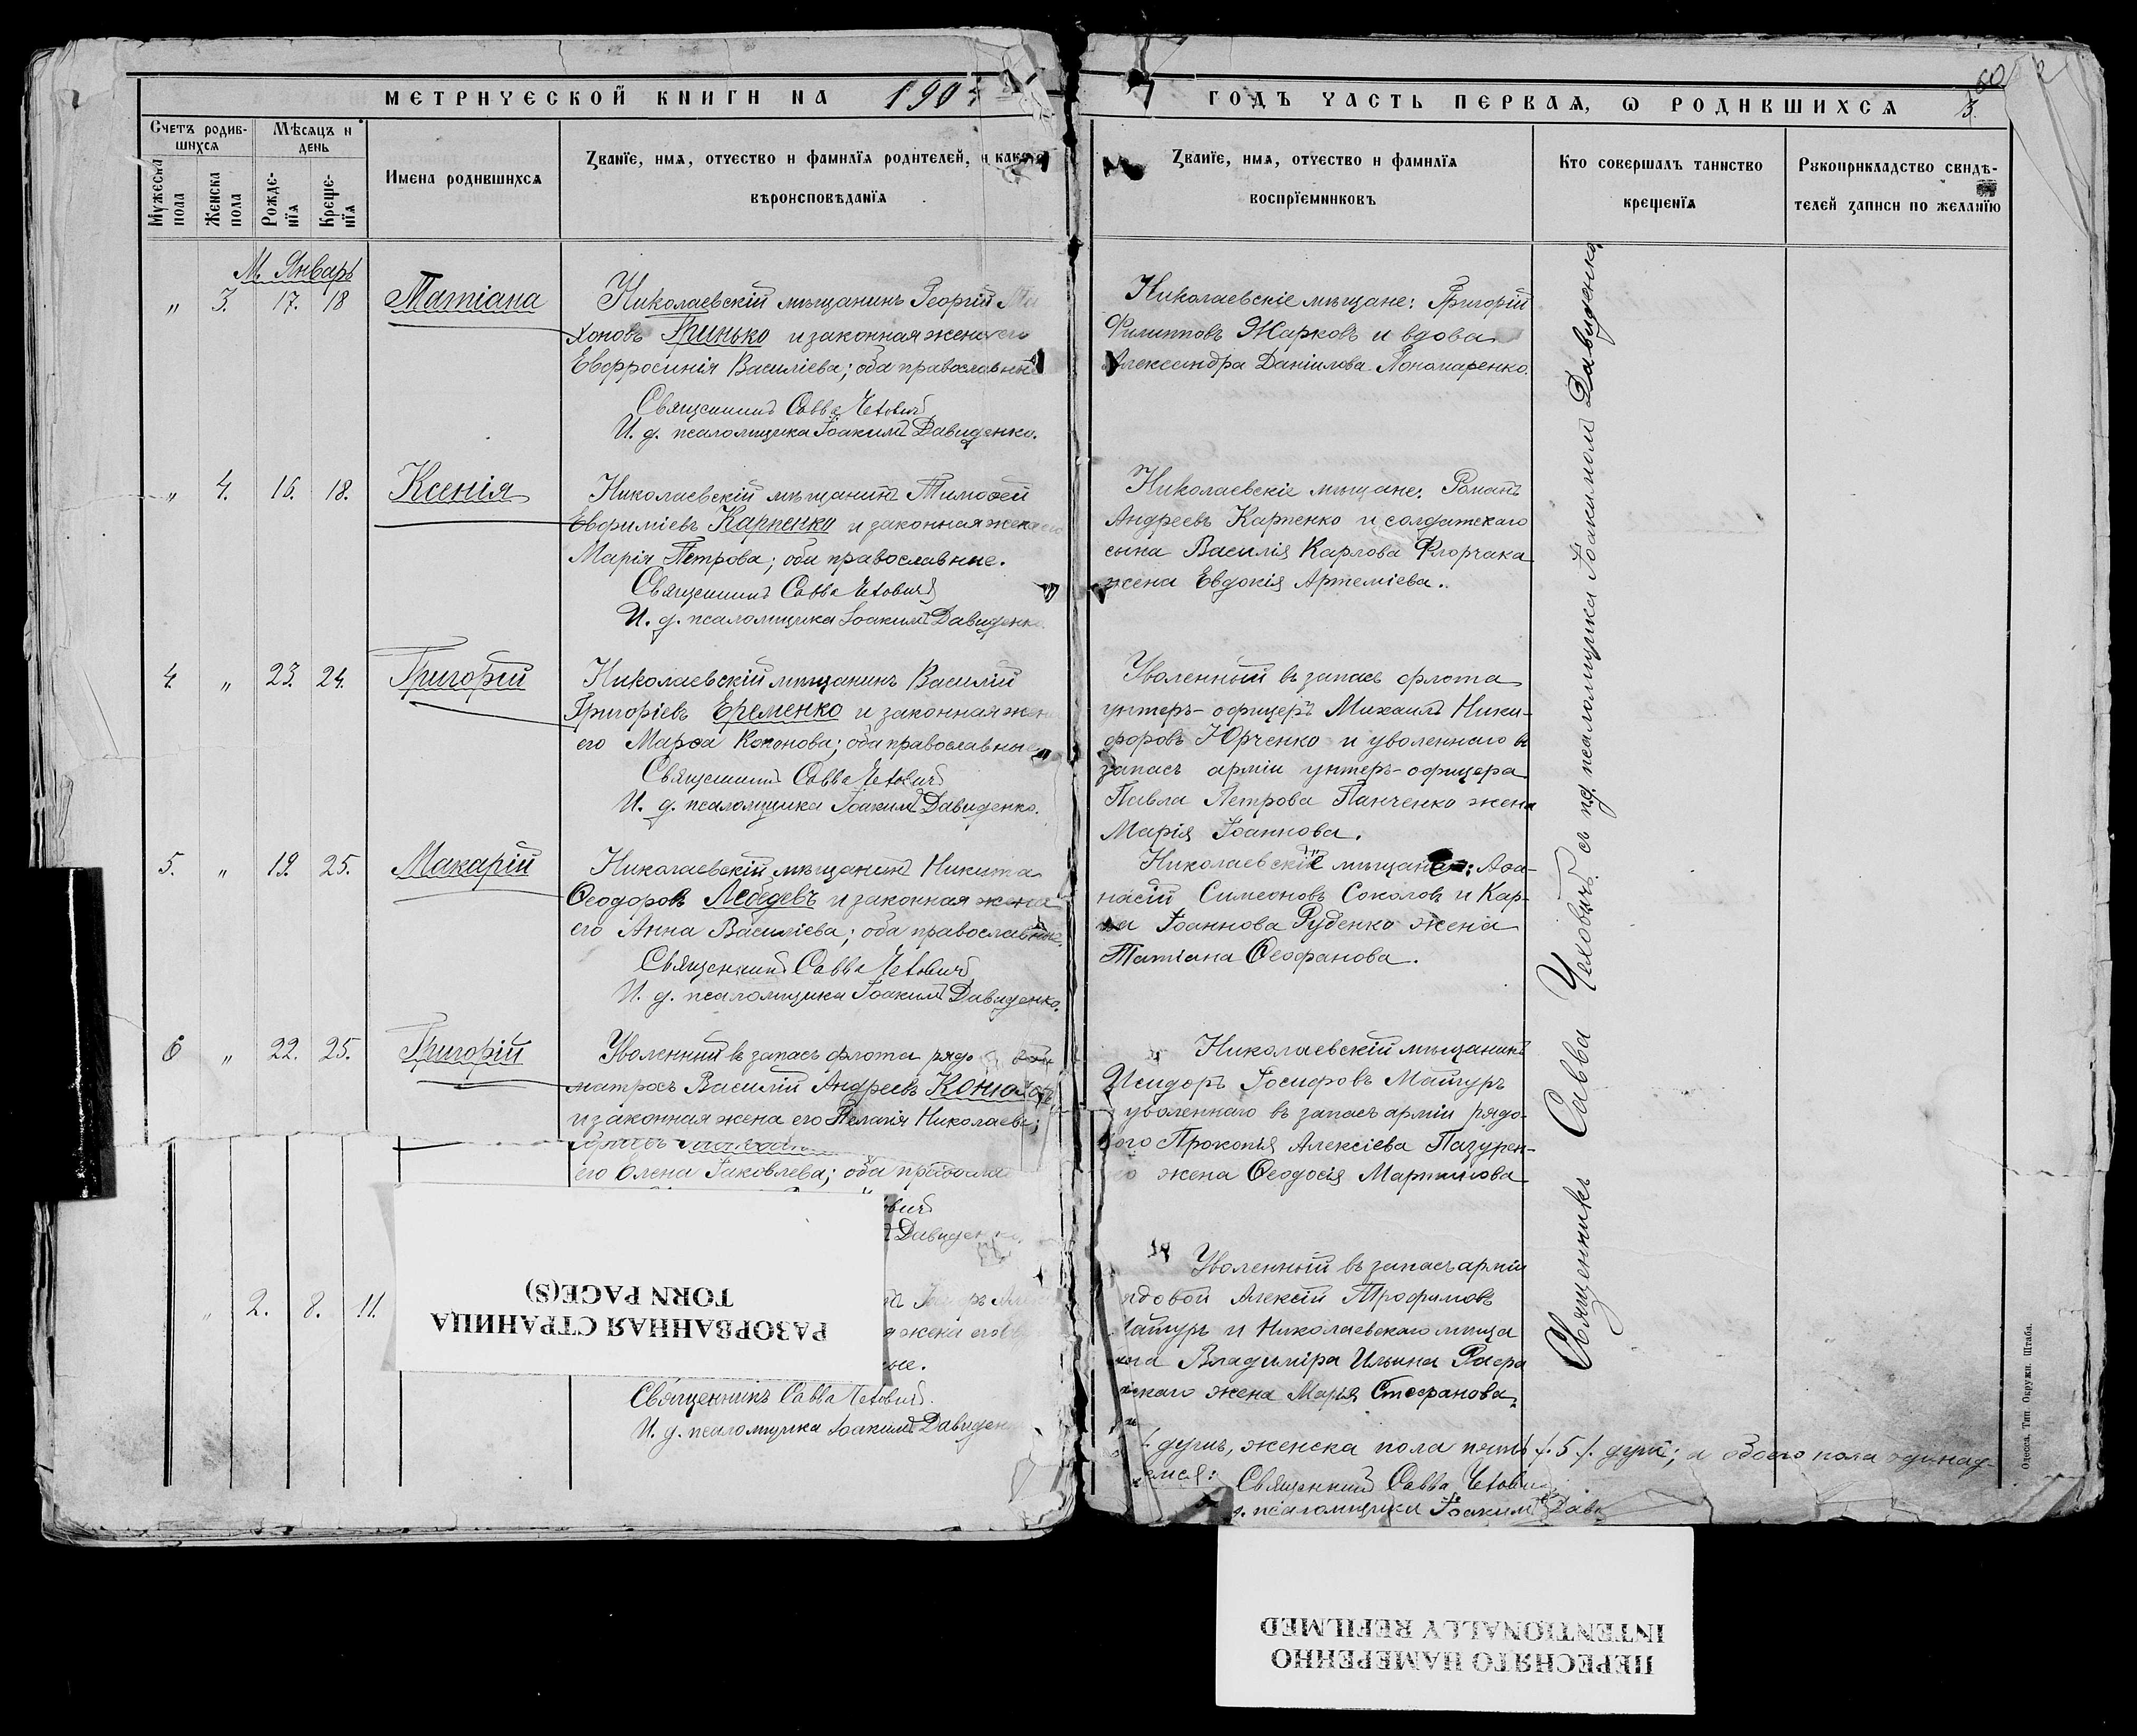 МЕТРИЧЕСКОЙ КНИГИ НА 190
ГОДЪ ЧАСТЬ ПЕРВАЯ, Ѡ РОДИВШИХСЯ
Счетъ родив-
шихся
Мѣсяцъ и
день
Мужеска
пола
Женска
пола
Рожде-
нїя
Креще-
нїя
Имена родившихся
Званїе, имя, отчество и фамилїя родителей, и какого
вѣроисповѣданїя
Званїе, имя, отчество и фамилїя
воспрїемниковъ
Кто совершалъ таинство
крещенїя
Рукоприкладство свидѣ-
телей записи по желанїю
М. Январь
„ 3. 17. 18 Татіана
Николаевскій мѣщанинъ Георгій Ти
хоновъ Гринько и законная жена его
Евфросинія Василіева; оба православные
Священникъ Савва Чехович
И. д. псаломщика Іоакимъ Давиденко.
Николаевскіе мѣщане: Григорій
Филипповъ Жарковъ и вдова
Александра Даніилова Пономаренко.
„ 4. 16. 18. Ксенія
Николаевскій мѣщанинъ Тимоѳей
Евфиміевъ Карпенко и законная жена его
Марія Петрова; оба православные.
Священникъ Савва Чехович
И. д. псаломщика Іоакимъ Давиденко.
Николаевскіе мѣщане: Романъ
Андреевъ Карпенко и солдатскаго
сына Василія Карлова Флорчака
жена Евдокія Артеміева.
4. „ 23. 24. Григорій
Николаевскій мѣщанинъ Василій
Григоріевъ Еременко и законная жена
его Марѳа Кононова; оба православные
Священникъ Савва Чехович
И. д. псаломщика Іоакимъ Давиденко.
Уволенный въ запасъ флота
унтеръ-офицеръ Михаилъ Ники-
форовъ Юрченко и уволеннаго въ
запасъ арміи унтеръ-офицера
Павла Петрова Панченко жена
Марія Іоаннова.
5. „ 19. 25. Макарій
Николаевскій мѣщанинъ Никита
Ѳеодоровъ Лебедевъ и законная жена
его Анна Василіева; оба православные.
Священникъ Савва Чехович
И. д. псаломщика Іоакимъ Давиденко.
Николаевскіе мѣщане: Аѳа-
насій Симеоновъ Соколовъ и Кар-
па Іоаннова Руденко жена
Татіана Ѳеофанова.
6 „ 22. 25. Григорій
Уволенный въ запасъ флота
матросъ Василій Андреевъ
и законная жена его Пелагія Николаева;
Николаевскій мѣщанинъ
Исидоръ Іосифовъ Матуръ
уволеннаго въ запасъ арміи рядо-
вого Прокопія Алексіева Пазурен-
ко жена Ѳеодосія Мартинова
его Елена Іаковлева; оба правосла
ович
Давиденко
РАЗОРВАННАЯ СТРАНИЦА
TORN PAGE(S)
„ 2. 8. 11.
жена его
ные.
Священникъ Савва Чехович.
И. д. псаломщика Іоакимъ Давиден
Уволенный въ запасъ арміи
ядовой Алексій Трофимовъ
атуръ и Николаевскаго мѣща
Владиміра Ильина
жена Марія Стефанова.
душъ, женска пола пять /.5./. душъ; а обоего пола одинад-
Священникъ Савва Чехович
д. псаломщика Іоакимъ Дави
Священникъ Савва Чеховичъ съ и. д. псаломщика Іоакимомъ Давиденко
Одесса. Тип. Окружн. Штаба.
ПЕРЕСНЯТО НАМЕРЕННО
INTENTIONALLY REFILMED